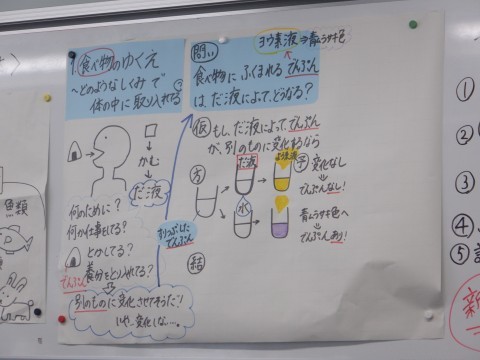 1. 食べ物のゆくえ
~どのようなしくみで
体の中に取り入れる
□
かむ
だ液
何のために?
何か仕事をしてる?
とかしてる?
でんぷん
養分をとり入れてる?
別のものに変化させてそうだ!
いや、変化しな…
すりつぶした
でんぷん
問い
ヨウ素液→青むらさき色
食べ物にふくまれるでんぷん
は、だ液によって、どうなる?
仮 もし、だ液によって、でんぷん
が、別のものに変化するなら
方
だ液
ヨウ素液
水
予 変化なし
でんぷんなし!
青むらさき色へ
でんぷんあり!
結
魚類
①
②
③
④
⑤